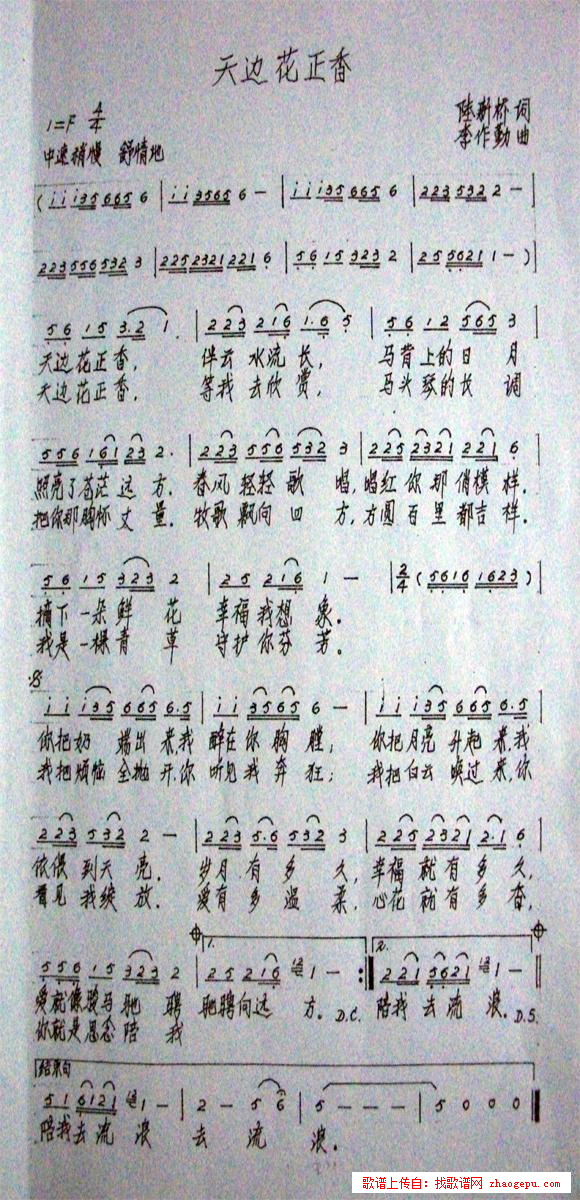 天边花正香
1=F 4/4
陆新桥 词
李作勤 曲
中速稍慢 舒情地
(i i i35 665 6 | i i 3565 6 - | i i i35 665 6 | 223 532 2 - |
223556532 3 | 2252321221 6 | 56 15 323 2 | 25 5621 1 - )
56 15 3.2 1. | 223 216 1.6 5 | 56 12 565 3
天边花正香, 伴云水流长, 马背上的日月
天边花正香, 等我去欣赏, 马头琴的长调
556 161 23 2. | 223 556 532 3 | 225 2321 221 6
照亮了苍茫远方. 春风轻轻歌唱, 唱红你那俏模样.
把你那胸怀丈量. 牧歌飘向四方, 方圆百里都吉祥.
56 15 323 2 | 25 216 1 - | 2/4 (5616 1623)
摘下一朵鲜花 幸福我想象.
我是一棵青草 守护你芬芳.
i i i35 665 6.5 | i i 3565 6 - | i i i35 665 6.5
你把奶端出来,我 醉在你胸膛; 你把月亮升起来,我
我把烦恼全抛开,你 听见我奔狂; 我把白云唤过来,你
223 532 2 - | 223 5.6 532 3 | 225 2321 2.1 6
依偎到天亮. 岁月有多久, 幸福就有多久,
看见我绽放. 爱有多温柔, 心花就有多香,
1. 2.
556 15 323 2 | 25 216 1 - :| 221 5621 1 - ||
爱就像骏马驰骋 驰骋向远方. D.C. 陪我去流浪. D.S.
你就是思念陪我
结束句
51 6121 1 - | 2 - 5 6 | 5 - - - | 5 0 0 0 ||
陪我去流浪 去流浪.
歌谱上传自：找歌谱网 zhaogepu.com